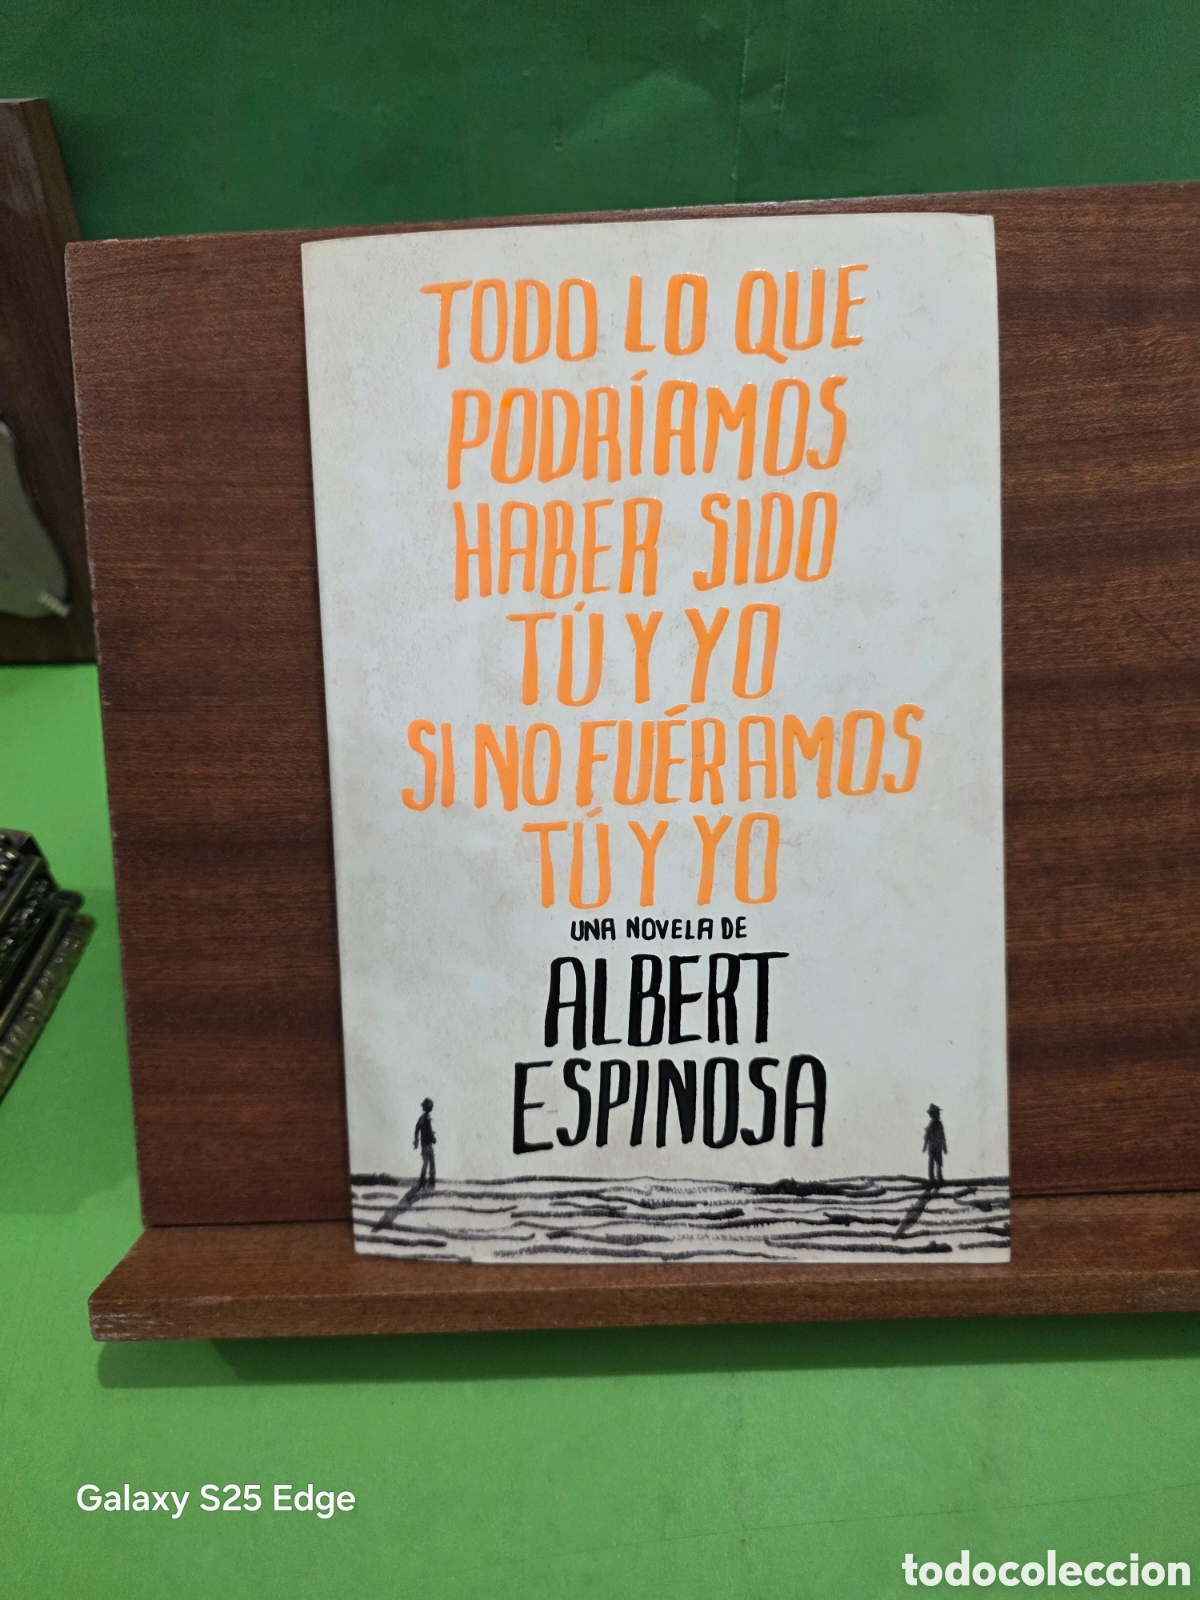 TODO LO QUE
PODRÍAMOS
HABER SIDO
TÚ Y YO
SI NO FUÉRAMOS
TÚ Y YO
UNA NOVELA DE
ALBERT
ESPINOSA
Galaxy S25 Edge
todocoleccion